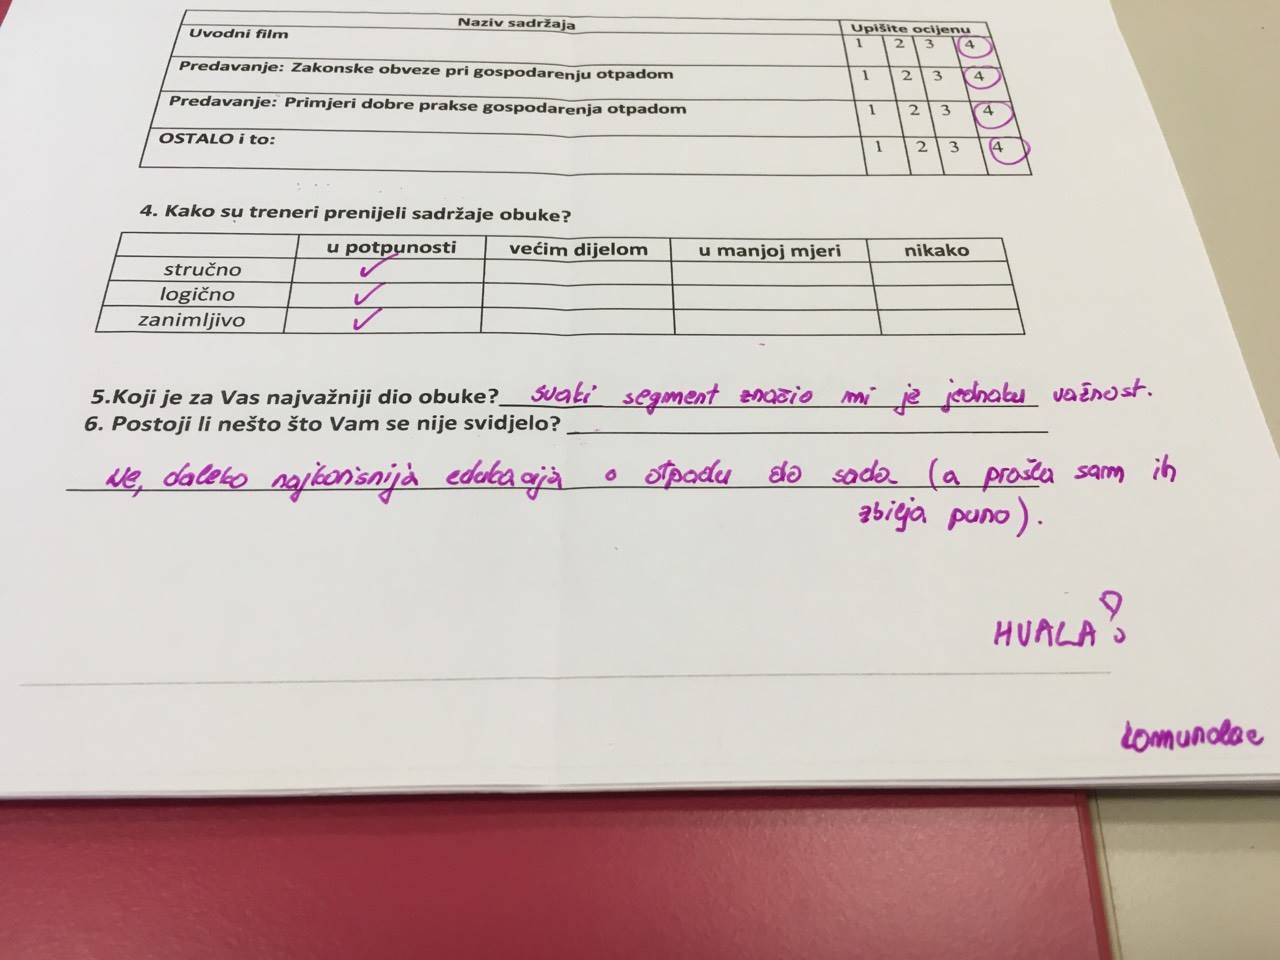 Naziv sadržaja Upišite ocijenu
Uvodni film 1 2 3 4
Predavanje: Zakonske obveze pri gospodarenju otpadom 1 2 3 4
Predavanje: Primjeri dobre prakse gospodarenja otpadom 1 2 3 4
OSTALO i to: 1 2 3 4
4. Kako su treneri prenijeli sadržaje obuke?
u potpunosti većim dijelom u manjoj mjeri nikako
stručno ✓
logično ✓
zanimljivo ✓
5.Koji je za Vas najvažniji dio obuke? svaki segment značio mi je jednaku važnost.
6. Postoji li nešto što Vam se nije svidjelo?
Ne, daleko najkorisnija edukacija o otpadu do sada (a prošla sam ih
zbilja puno).
HVALA!
komunalac